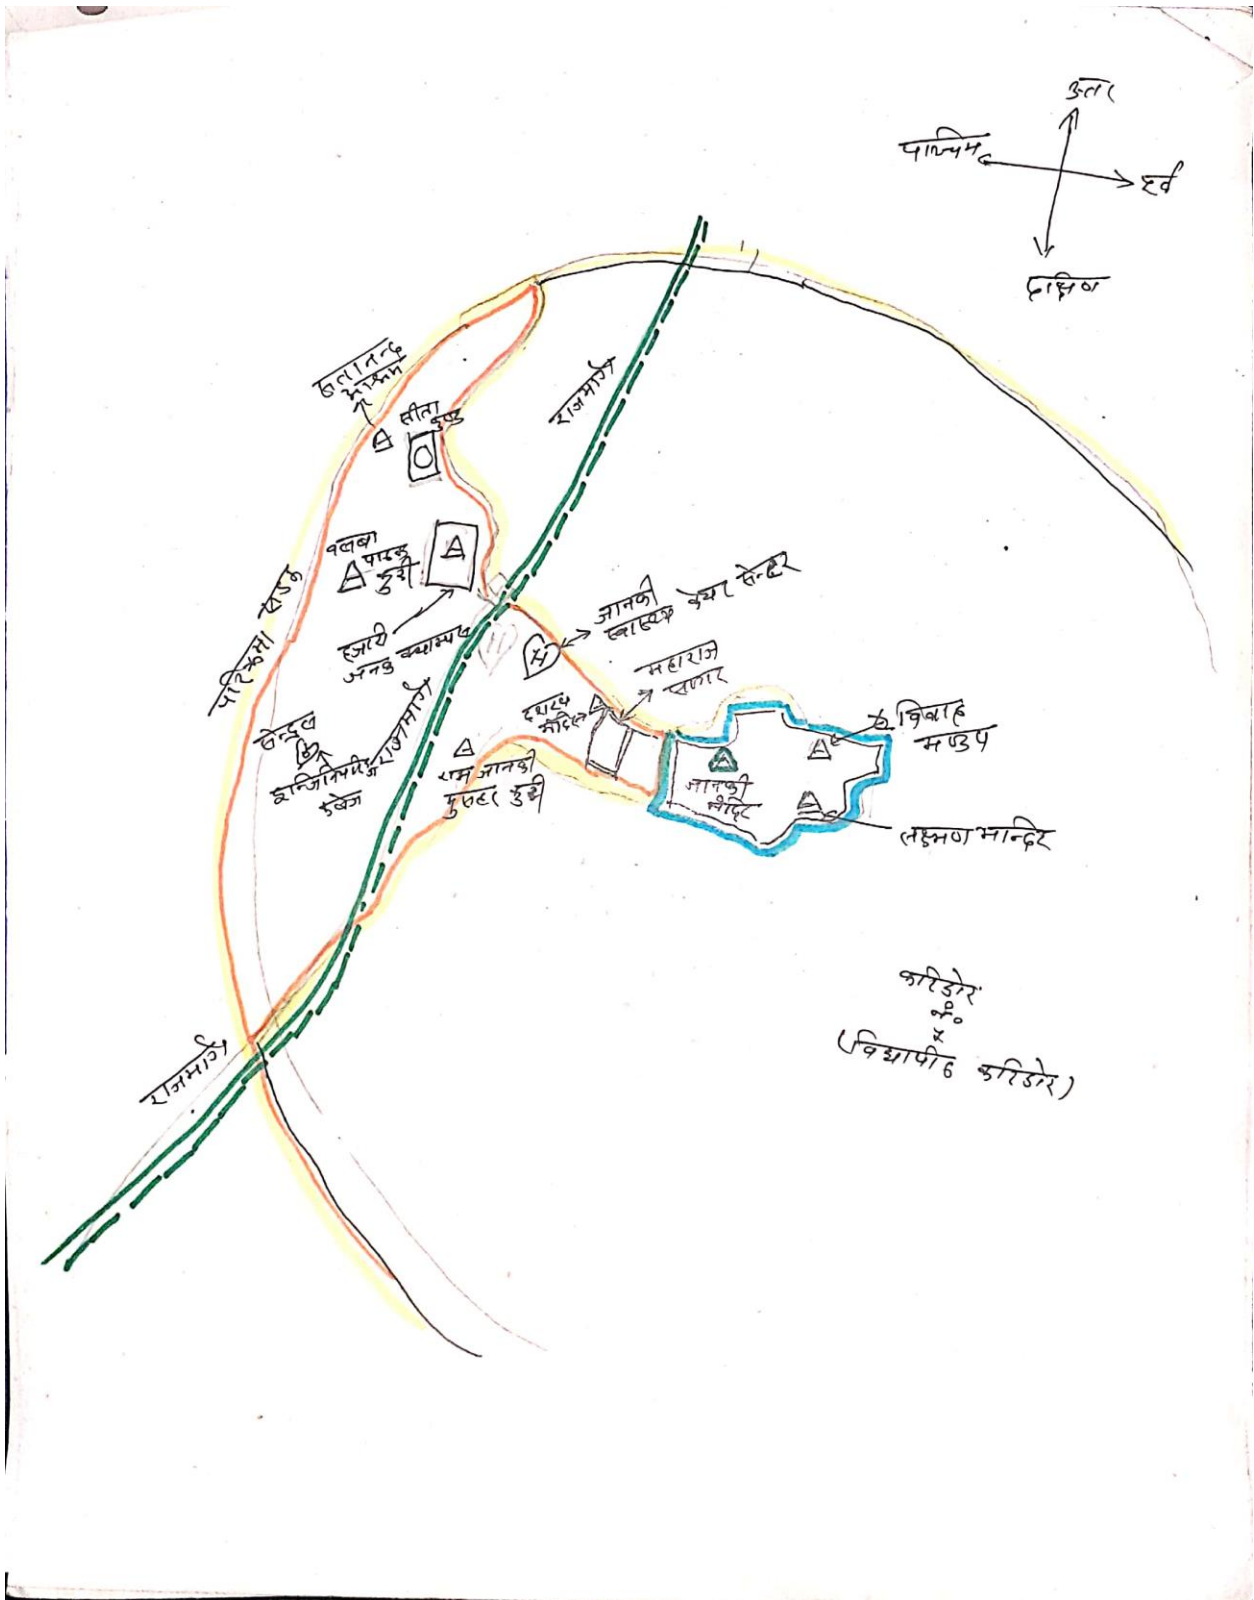 उत्तर
पश्चिम
पूर्व
दक्षिण
सतानन्द
आश्रम
सीता
कुण्ड
राजमार्ग
पाठक
कुटी
परिक्रमा सडक
हजारी
जनक क्याम्पस
जानकी
स्वास्थ्य केयर सेन्टर
महाराज
सागर
दशरथ
मंदिर
राजमार्ग
सेन्ट्रल
इन्जिनियरिङ
कलेज
राम जानकी
कुटी
जानकी
मंदिर
विवाह
मण्डप
लक्ष्मण मन्दिर
राजमार्ग
करिडोर
नं०
(विद्यापीठ करिडोर)